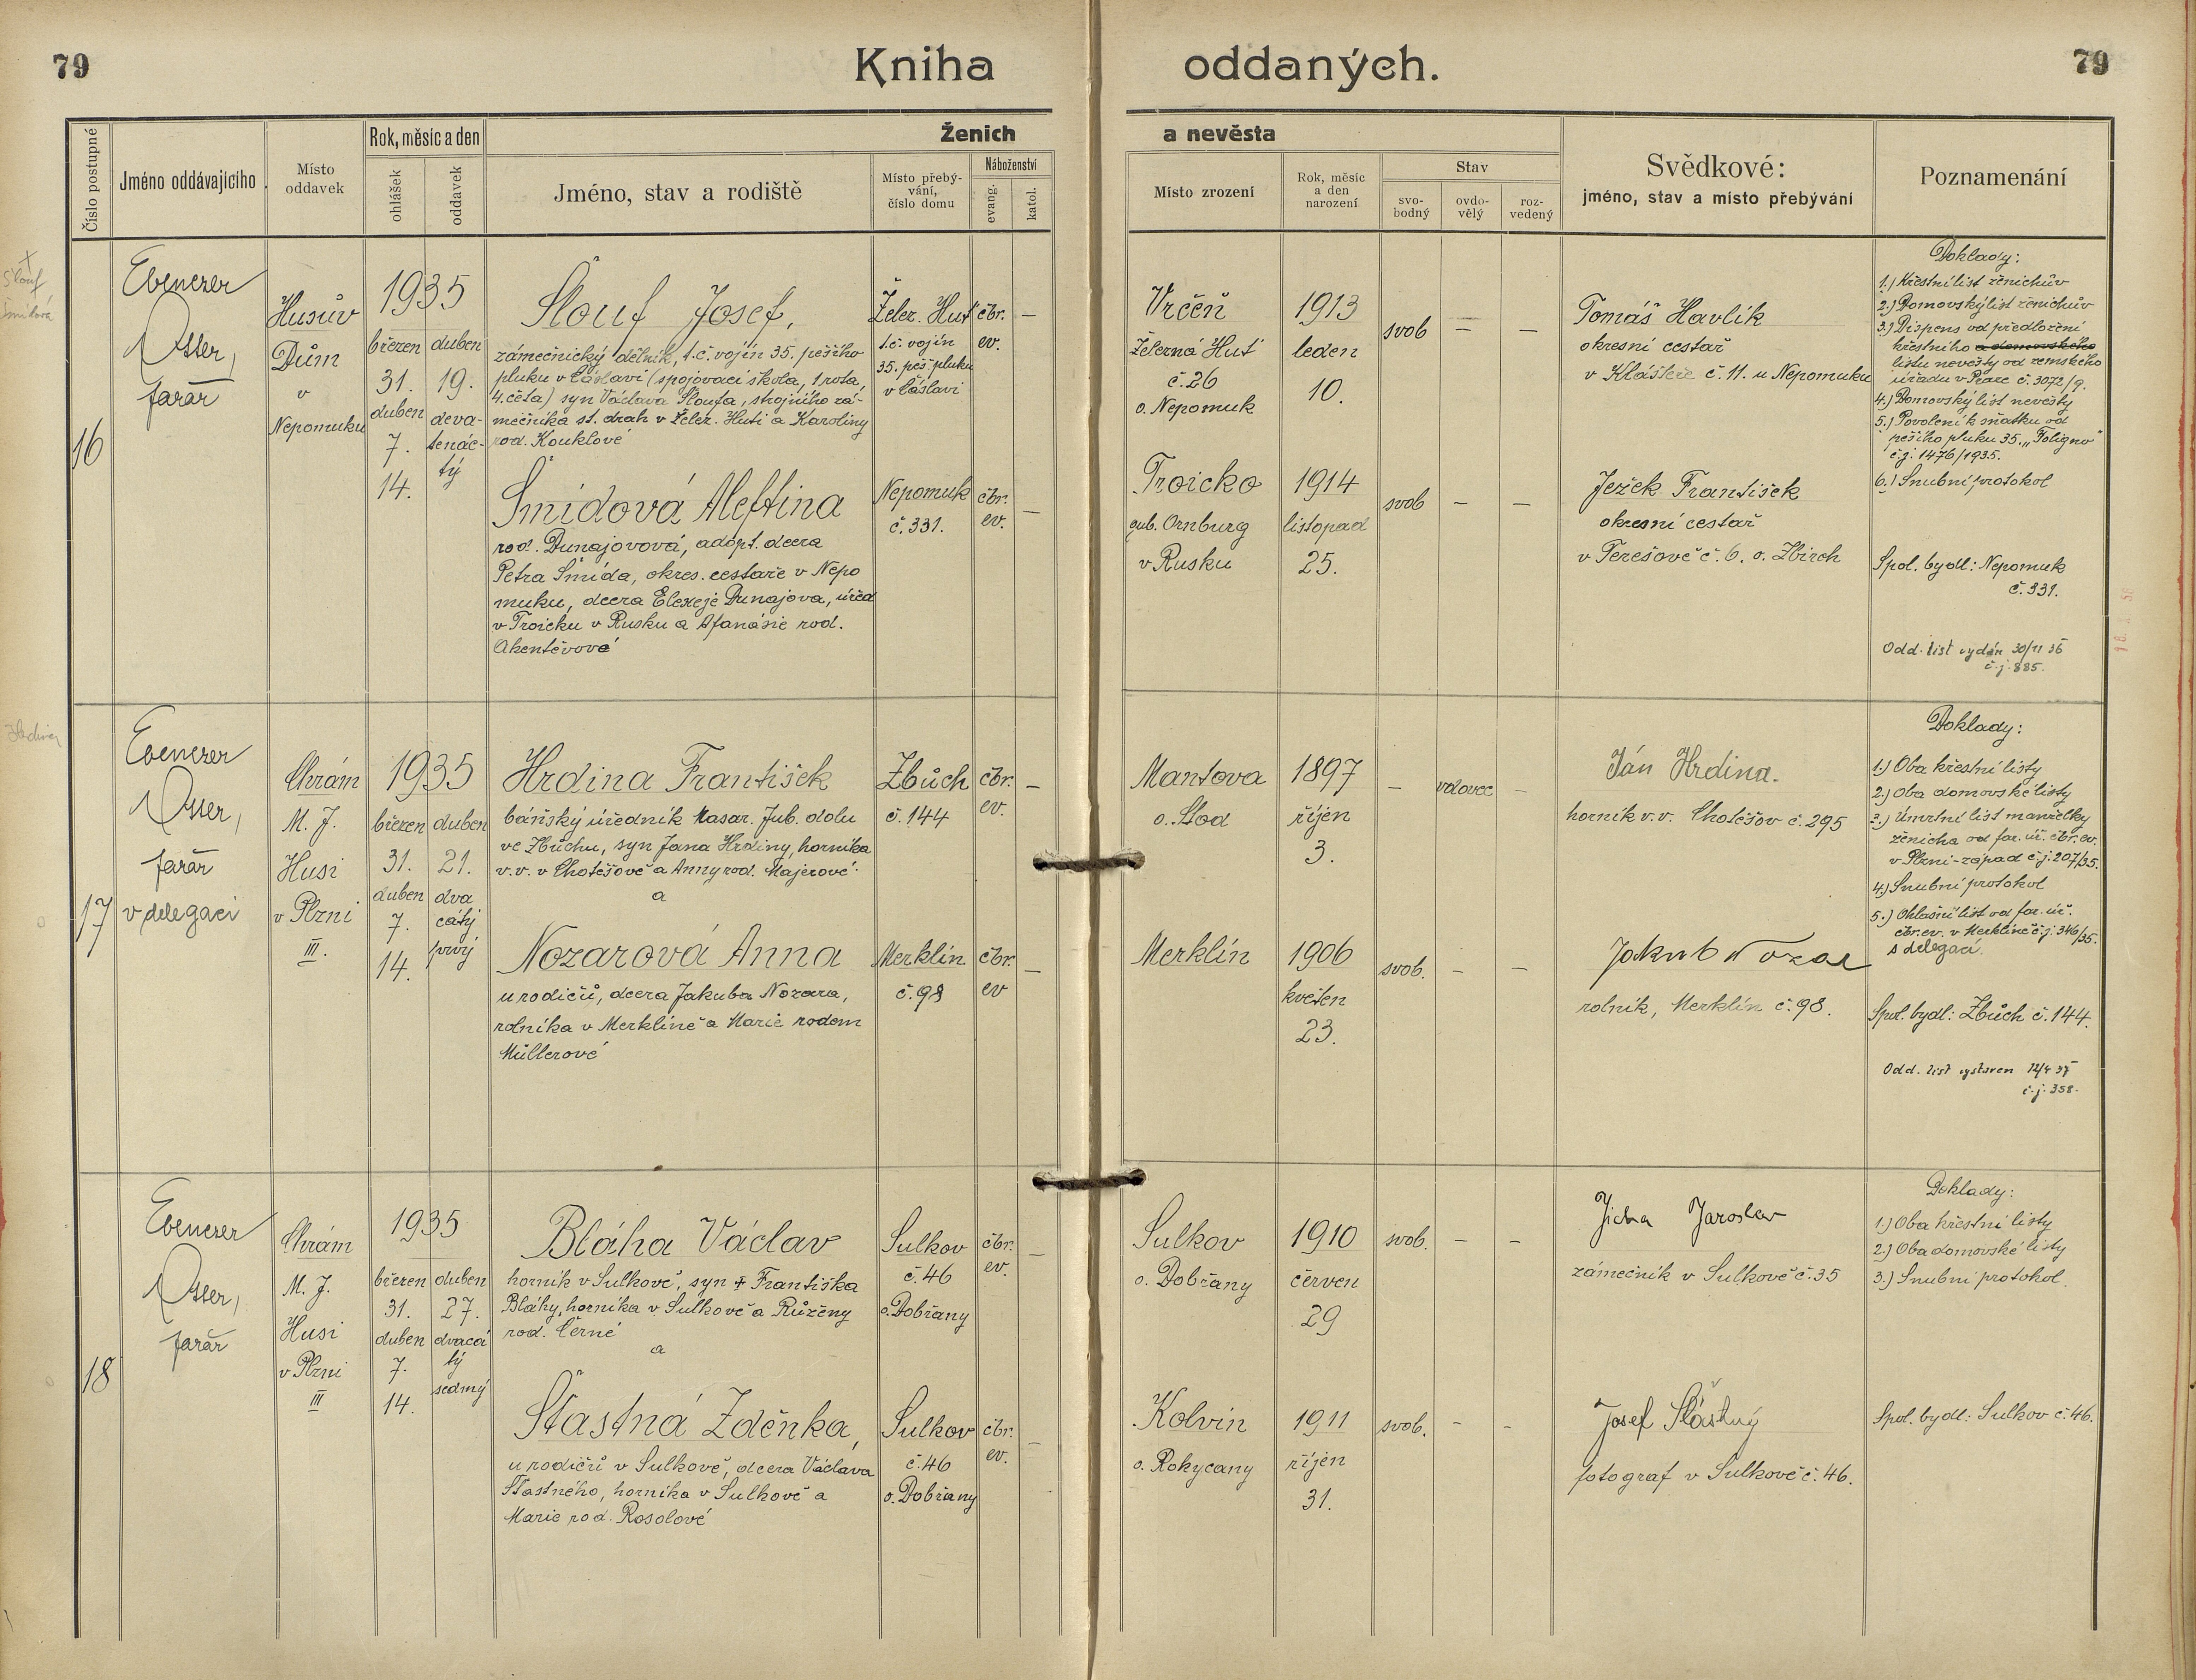 79
Kniha oddaných.
79
Číslo postupné
Jméno oddávajícího
Místo oddavek
Rok, měsíc a den
ohlášek
oddavek
Ženich a nevěsta
Jméno, stav a rodiště
Místo přebývání, číslo domu
Náboženství
evang.
katol.
Místo zrození
Rok, měsíc a den narození
Stav
svobodný
ovdovělý
rozvedený
Svědkové:
jméno, stav a místo přebývání
Poznamenání
16
Ebenezer
Otter,
farář
Husův
Dům
v
Nepomuku
1935
březen
31.
duben
7.
14.
duben
19.
deva-
tenác-
tý
Šlouf Josef,
zámečnický dělník, t.č. vojín 35. pěšího
pluku v Čáslavi (spojovací škola, 1 rota,
4. četa) syn Václava Šloufa, strojního zá-
mečníka st. drah v Želez. Huti a Karoliny
rod. Kouklové
Želez. Huť
t.č. vojín
35. pěš. pluku
v Čáslavi
čbr.
ev.
–
Vrčeň
Železná Huť
č. 26
o. Nepomuk
1913
leden
10.
svob
–
–
Tomáš Havlík
okresní cestář
v Klášteře č. 11. u Nepomuku
Doklady:
1.) Křestní list ženichův
2.) Domovský list ženichův
3.) Dispens od předložení
křestního a domovského
listu nevěsty od zemského
úřadu v Praze č. 3072/9.
4.) Domovský list nevěsty
5.) Povolení k sňatku od
pěšího pluku 35. „Foligno"
č.j. 1476/1935.
6.) Snubní protokol
Šmídová Aleftina
rod. Dunajovová, adopt. dcera
Petra Šmída, okres. cestáře v Nepo
muku, dcera Elexeje Dunajova, úřed
v Troicku v Rusku a Afanásie rod.
Akentěvové
Nepomuk
č. 331.
čbr.
ev.
–
Troicko
gub. Ornburg
v Rusku
1914
listopad
25.
svob
–
–
Ježek František
okresní cestář
v Terešově č. 6. o. Zbiroh
Spol. bydl: Nepomuk
č. 331.
Odd. list vydán 30/11 36
č.j. 885.
17
Ebenezer
Otter,
farář
v delegaci
Chrám
M. J.
Husi
v Plzni
III.
1935
březen
31.
duben
7.
14.
duben
21.
dva
cátý
prvý
Hrdina František
báňský úředník Masar. Jub. dolu
ve Zbůchu, syn Jana Hrdiny, horníka
v.v. v Chotěšově a Anny rod. Majerové
a
Zbůch
č. 144
čbr.
ev.
–
Mantova
o. Stod
1897
říjen
3.
–
vdovec
–
Ján Hrdina.
horník v.v. Chotěšov č. 295
Doklady:
1.) Oba křestní listy
2.) Oba domovské listy
3.) Úmrtní list manželky
ženicha od far. úř. čbr. ev.
v Plzni-západ č.j. 207/35.
4.) Snubní protokol
5.) Ohlašní list od far. úř.
čbr. ev. v Merklíně č.j. 346/35.
s delegací.
Nozarová Anna
u rodičů, dcera Jakuba Nozara,
rolníka v Merklíně a Marie rodem
Müllerové
Merklín
č. 98
čbr.
ev
–
Merklín
1906
květen
23.
svob.
–
–
Jakub Nozar
rolník, Merklín č. 98.
Spol. bydl: Zbůch č. 144.
Odd. list vystaven 12/4 37
č.j. 358.
18
Ebenezer
Otter,
farář
Chrám
M. J.
Husi
v Plzni
III
1935
březen
31.
duben
7.
14.
duben
27.
dvacá
tý
sedmý
Bláha Václav
horník v Sulkově, syn † Františka
Bláhy, horníka v Sulkově a Růženy
rod. Černé
a
Sulkov
č. 46
o. Dobřany
čbr.
ev.
–
Sulkov
o. Dobřany
1910
červen
29
svob.
–
–
Jícha Jaroslav
zámečník v Sulkově č. 35
Doklady:
1.) Oba křestní listy
2.) Oba domovské listy
3.) Snubní protokol.
Šťastná Zdeňka,
u rodičů v Sulkově, dcera Václava
Šťastného, horníka v Sulkově a
Marie rod. Rosolové
Sulkov
č. 46
o. Dobřany
čbr.
ev.
–
Kolvín
o. Rokycany
1911
říjen
31.
svob.
–
–
Josef Šťástný
fotograf v Sulkově č. 46.
Spol. bydl: Sulkov č. 46.